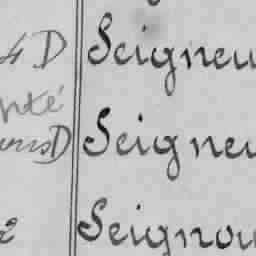 4 D Seigneu
nté
D Seigneu
2 Seignou